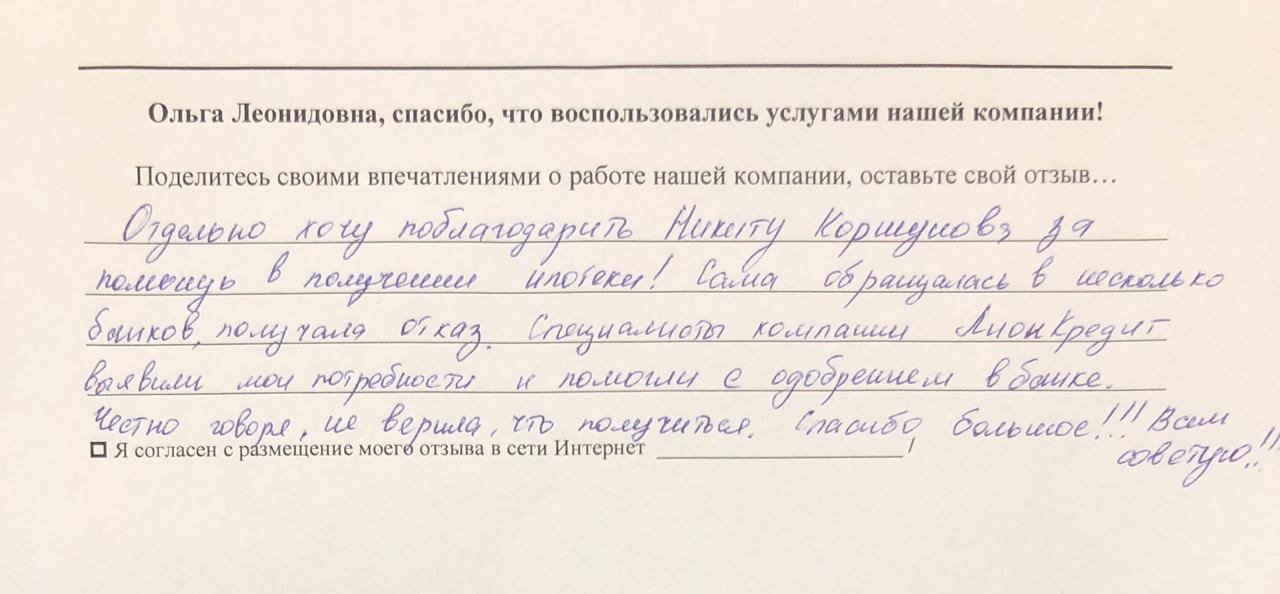 Ольга Леонидовна, спасибо, что воспользовались услугами нашей компании!
Поделитесь своими впечатлениями о работе нашей компании, оставьте свой отзыв…
Отдельно хочу поблагодарить Никиту Коршунова за
помощь в получении ипотеки! Сама обращалась в несколько
банков, получала отказ. Специалисты компании ЛионКредит
выявили мои потребности и помогли с одобрением в банке.
Честно говоря, не верила, что получиться. Спасибо большое!!! Всем
советую..!!
Я согласен с размещение моего отзыва в сети Интернет ____________________/